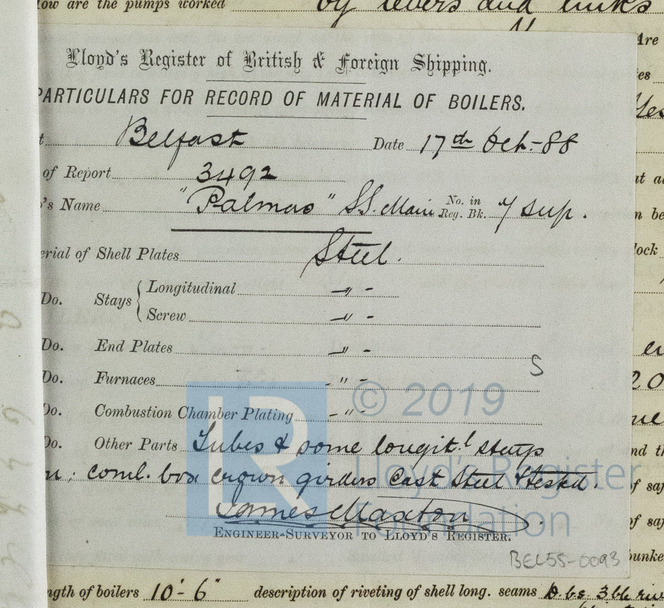 How are the pumps worked by levers and links
Are
Lloyd's Register of British & Foreign Shipping.
PARTICULARS FOR RECORD OF MATERIAL OF BOILERS.
Yes
Belfast Date 17th Oct-88
of Report 3492
's Name "Palmas" S.S. Main No. in Reg. Bk. 7 sup.
erial of Shell Plates Steel.
Do. Stays { Longitudinal " -
Screw " -
Do. End Plates " -
S
Do. Furnaces - " -
20
Do. Combustion Chamber Plating - " -
© 2019
Do. Other Parts Tubes & some longit.l stays
comb. box crown girders Cast Steel tested.
LR
Lloyd's Register Foundation
James Maxton
ENGINEER-SURVEYOR TO LLOYD'S REGISTER.
of saf
of saf
BEL55-0093
ngth of boilers 10'-6" description of riveting of shell long. seams